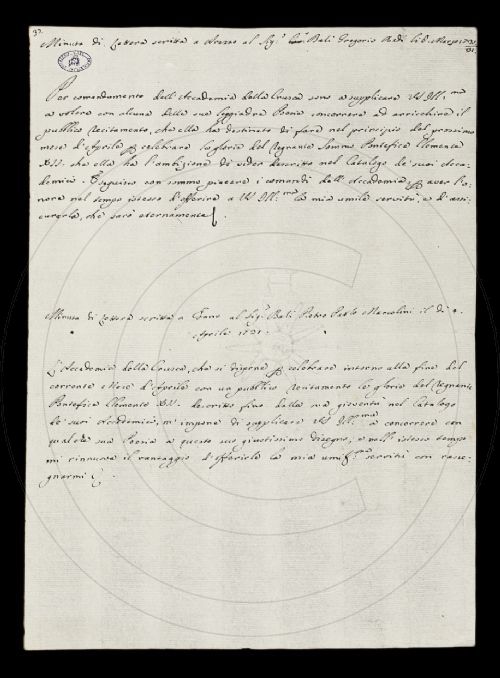 Minuta di Lettera scritta a Arezzo al Sig.r Balì Gregorio Redi li 6. Marzo
Per comandamento dell' Accademia della Crusca sono a supplicare VS Ill.ma
a volere con alcuna delle sue leggiadre Poesie concorrere ad arricchire il
pubblico recitamento, che ella ha destinato di fare nel principio del prossimo
mese d'Aprile per celebrare la gloria del Regnante Sommo Pontefice Clemente
XII. che ella ha l'ambizione di veder descritto nel Catalogo de' suoi Acca-
demici. Eseguisco con sommo piacere i comandi dell' Accademia, per aver l'o-
nore nel tempo istesso d'offerire a VS Ill.ma la mia umile servitù, e d'assi-
curarla, che sarò eternamente
Minuta di Lettera scritta a Fano al Sig.r Balì Pietro Paolo Marcolini il dì
Aprile 1731.
L'Accademia della Crusca, che si dispone per celebrare intorno alla fine del
corrente Mese d'Aprile con un pubblico recitamento le glorie del Regnante
Pontefice Clemente XII. descritto fino dalla sua gioventù nel Catalogo
de' suoi Accademici, m' impone di supplicare VS Ill.ma a concorrere con
qualche sua Poesia a questo suo giustissimo disegno, e nell' istesso tempo
mi rinnova il vantaggio d'offerirle la mia umil.ma servitù con rasse-
gnarmi